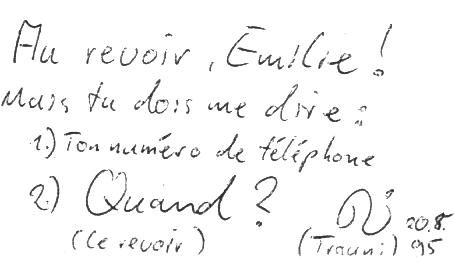 Au revoir, Emilie!
Mais tu dois me dire:
1.) Ton numéro de téléphone
2.) Quand? 20.8.
(le revoir) (Trauni) 95